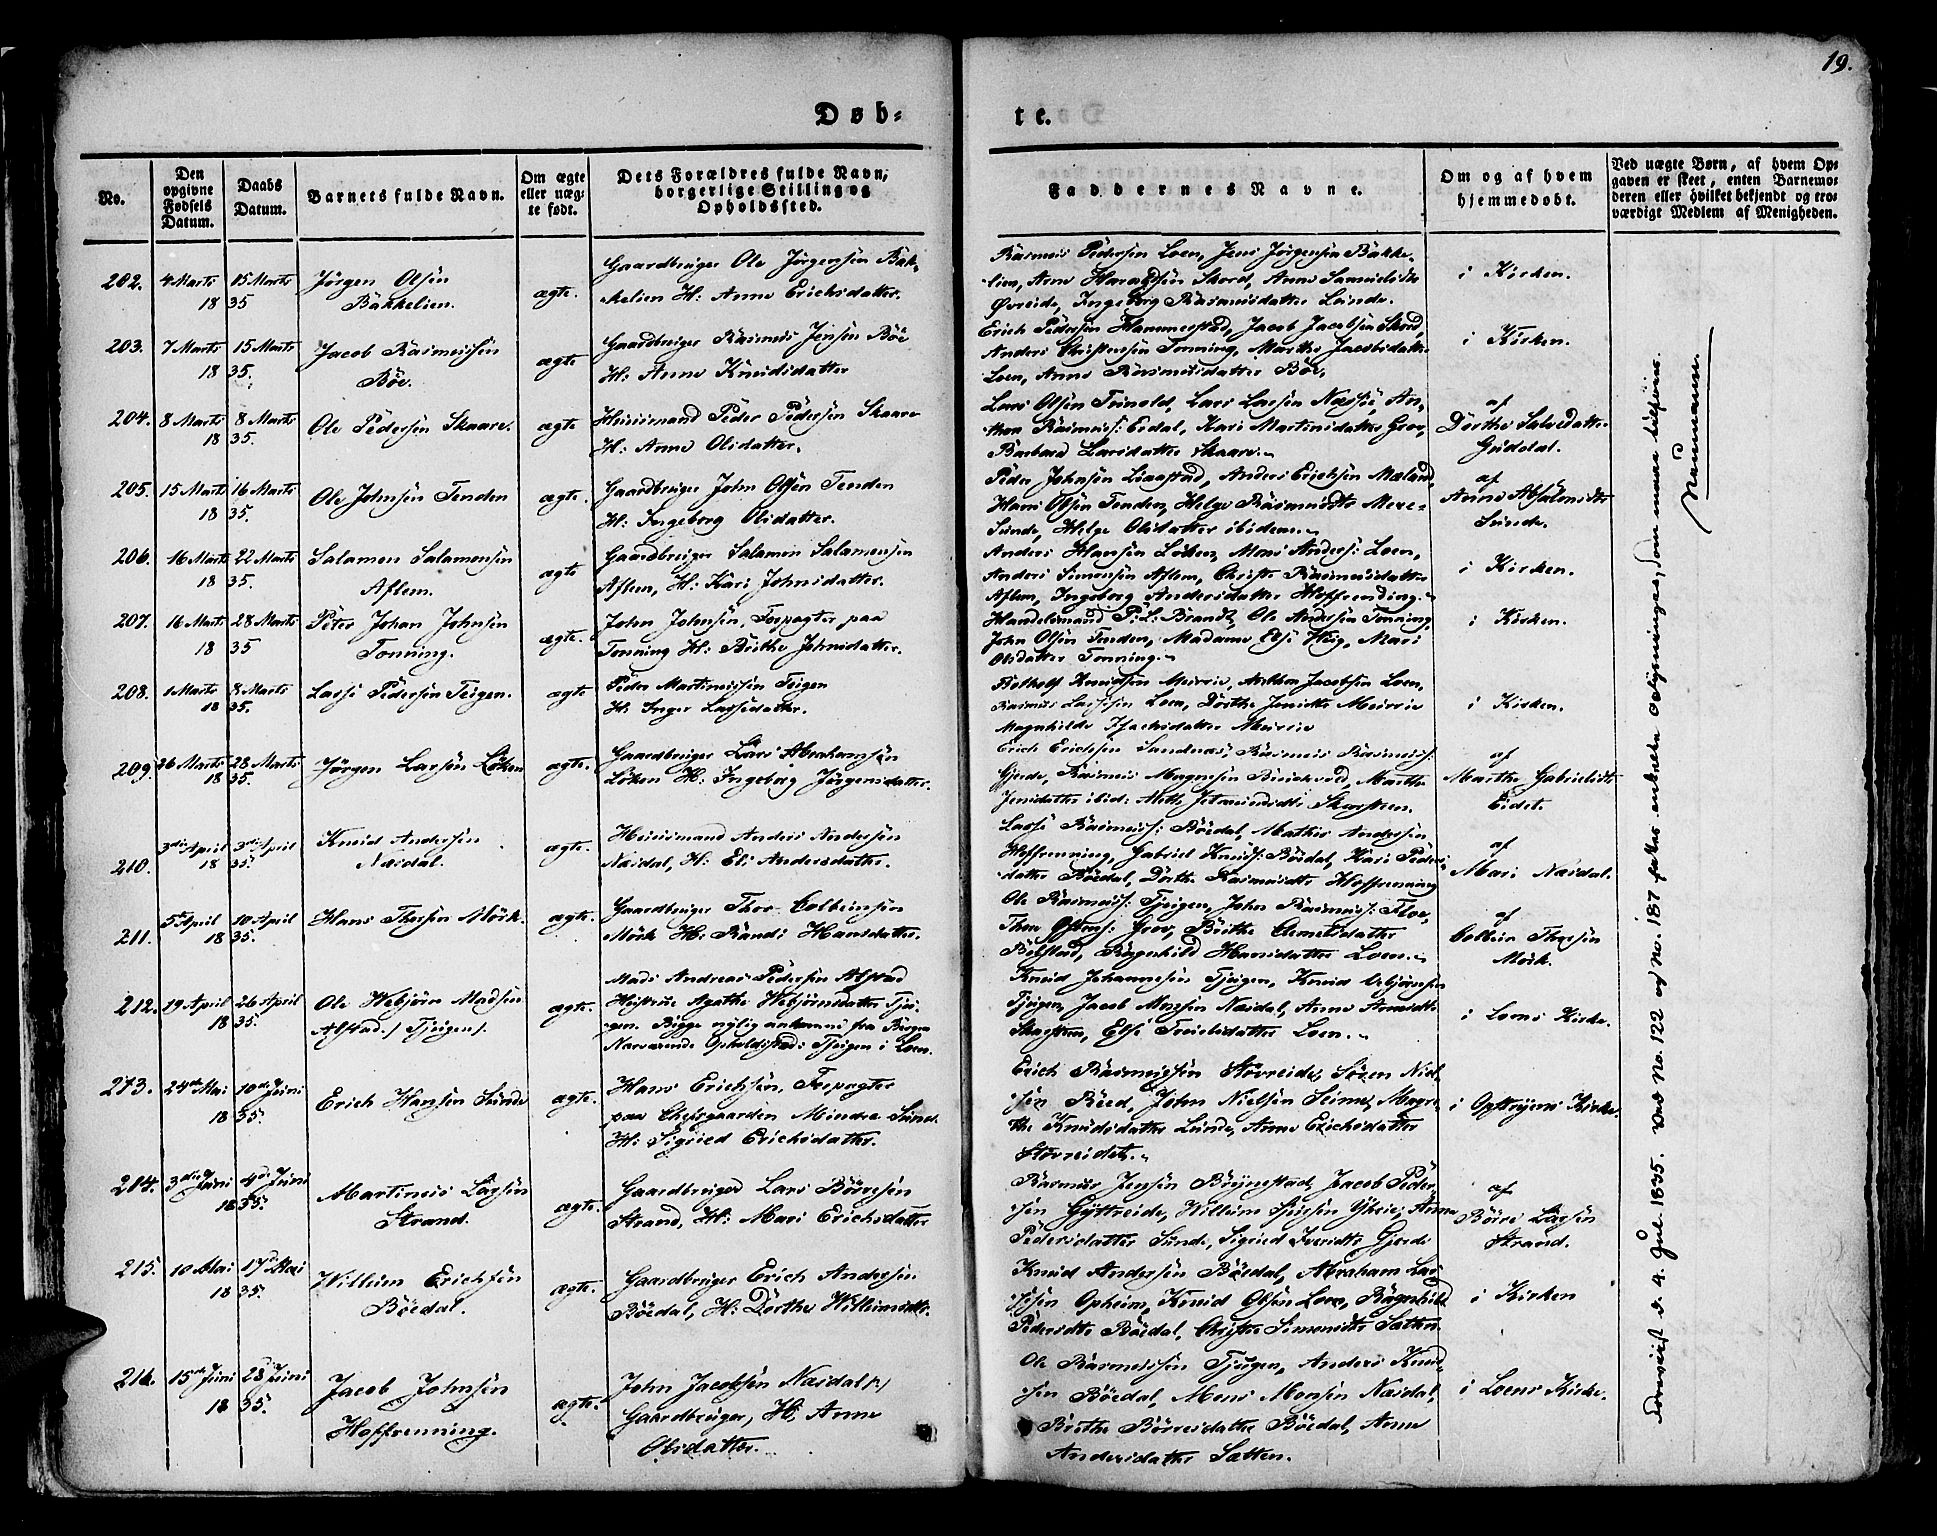 19.
Døb-
te.
No.
Den opgivne Fødsels Datum.
Daabs Datum.
Barnets fulde Navn.
Om ægte eller uæg-te født.
Dets Forældres fulde Navn, borgerlige Stilling og Opholdssted.
Faddernes Navne.
Om og af hvem hjemmedøbt.
Ved uægte Børn, af hvem Op-
gaven er skeet, enten Barnemo-
deren eller hvilket bekjendt og tro-
værdigt Medlem af Menigheden.
202. 4 Marts 15 Marts Jørgen Olsen
18 35
Bäkkelien.
ægte.
Gaardbruger Ole Jørgensen Bäk-
kelien H: Anne Erichsdatter.
Rasmus Pedersen Loen, Jens Jørgensen Bäkke-
lien, Arne Haraldsen Skord, Anne Samuelsdtr
Øvreide, Ingeborg Rasmusdatter Lunde.
i Kirken.
203. 7 Marts 15 Marts Jacob Rasmussen
18 35.
Böe.
ægte
Gaardbruger Rasmus Jensen Böe
H: Anne Knudsdatter
Erich Pedersen Hammerstad, Jacob Jacobsen Skord,
Anders Christensen Tonning, Marthe Jacobsdatter
Loen, Anne Rasmusdatter Böe.
i Kirken.
204. 8 Marts 8 Marts Ole Pedersen Skaare.
18 35.
ægte
Huusmand Peder Pedersen Skaare
H: Anne Olsdatter.
Lars Olsen Tunold, Lars Larsen Næssie, An-
thon Rasmuss: Erdal, Kari Martinsdatter Grov,
Barbara Larsdatter Skaare.
af
Dorthe Salvedatter
Guddal.
205. 15 Marts 16 Marts Ole Johnsen Tenden
18 35.
ægte.
Gaardbruger John Olsen Tenden
H: Ingeborg Olsdatter.
Peder Johnsen Liaastad, Anders Erichsen Mæland,
Hans Olsen Tenden, Helge Rasmusdtr Mere-
Sunde, Helge Olsdatter ibidem.
af
Anne Absalonsdtr
Sunde.
206. 16 Marts 22 Marts Salamon Salamonsen
18 35.
Aflem.
ægte
Gaardbruger Salamon Salamonsen
Aflem, H: Kari Johnsdatter.
Anders Hansen Løken, Mons Anders: Loen,
Anders Simonsen Aflem, Christi Rasmusdatter
Aflem, Ingeborg Andersdatter Hoffrenning.
i Kirken.
207. 16 Marts 28 Marts Peter Johan Johnsen
18 35
Tonning.
ægte.
John Johnsen, Forpagter paa
Tonning H: Brithe Johnsdatter.
Handelsmand P: L: Brandt, Ole Andersen Tonning,
John Olsen Tenden, Madame Else Heig, Mari
Olsdatter Tonning.
i Kirken.
208. 1 Marts 8 Marts Lasse Pedersen Teigen.
18 35.
ægte
Peder Martinussen Teigen
H: Inger Lassedatter.
Botholf Knudsen Murrie, Anthon Jacobsen Loen,
Rasmus Lassesen Loen, Dorthe Jensdtr Muirrie
Magnhilde Isachsdatter Muirrie
i Kirken.
209. 26 Marts 28 Marts Jørgen Larsen Løken
18 35.
ægte.
Gaardbruger Lars Abrahamsen
Løken H: Ingeborg Jørgensdatter.
Erich Erichsen Sandnæs, Rasmus Rasmuss:
Gjerde, Rasmus Magnesen Bruikvold, Marthe
Jensdatter ibid: Mette Jetmundsdtr Skarsteen.
af
Marthe Gabrielsdtr
Eidet.
210. 3die April 3die April Knud Andersen
18 35.
Naisdal.
ægte.
Huusmand Anders Andersen
Naisdal, H: Eli Andersdatter.
Lasse Rasmuss: Böedal, Mathis Andersen
Hoffrenning, Gabriel Knuds: Böedal, Kari Peders-
datter Böedal, Dorthe Rasmusdtr Hoffrenning
af
Mari Naisdal.
211. 5 April 10 April Hans Thorsen Mörk.
18 35.
ægte.
Gaardbruger Thor Colbeinsen
Mörk H: Randi Hansdatter.
Ole Rasmuss: Tjugen, John Rasmuss: Floe,
Thor Ols: Grov, Brithe Clemetsdatter
Bölstad, Ragnhild Hansdatter Loen.
af
Colbein Thorsen
Mörk.
212. 19 April 26 April Ole Webjörn Madsen
18 35.
Alstad. / Tjugen /.
ægte.
Mads Andreas Pedersen Alstad
Hustrue Agathe Webjörnsdatter Tju-
gen. Begge nylig ankomne fra Bergen
Nærværende Opholdssted: Tjugen i Loen.
Knud Johannesen Tjugen, Knud Webjörnsen
Tjugen, Jacob Monsen Naisdal, Anne Arnesdtr
Skarsteen, Else Truelsdatter Loen.
i Loens Kirke.
213. 24de Mai 10de Juni Erich Hansen Sunde
18 35.
ægte.
Hans Erichsen, Forpagter
paa Chefsgaarden Mindre Sunde
H: Sigried Erichsdatter.
Erich Rasmussen Stovreide, Søren Niel-
sen Reed, John Nielsen Seime, Magre-
the Knudsdatter Lunde, Anne Erichsdatter
Stovreidet.
i Opstryens Kirke.
214. 3die Juni 4de Juni Martinus Larsen
18 35.
Strand.
ægte.
Gaardbruger Lars Börresen
Strand, H: Mari Erichsdatter
Rasmus Jensen Brynestad, Jacob Peder-
sen Gyttreide, Willum Ybrie, Anna
Pedersdatter Sunde, Sigried Iversdtr Gjerde
af
Börre Larsen
Strand.
215. 10 Mai 17de Mai Willum Erichsen
18 35.
Böedal.
ægte.
Gaardbruger Erich Andersen
Böedal, H: Dorthe Willumsdtr.
Knud Andersen Böedal, Abraham Las-
sesen Opheim, Knud Olsen Loen, Ragnhild
Pedersdtr Böedal, Christi Simonsdtr Sætten.
i Kirken
216. 15de Juni 28 Juni Jacob Johnsen
18 35.
Hoffrenning.
ægte.
John Jacobsen Naisdal
Gaardbruger, H: Anne
Olsdatter.
Ole Rasmussen Tjugen, Anders Knud-
sen Böedal, Mons Monsen Naisdal,
Brithe Börresdatter Böedal, Anne
Andersdatter Sætten.
i Loens Kirke.
Revideret d. 4. Jul. 1835. Ved No. 122 og No. 187 fattes enkelte Oplysninger, som maae tilføies.
Naumann